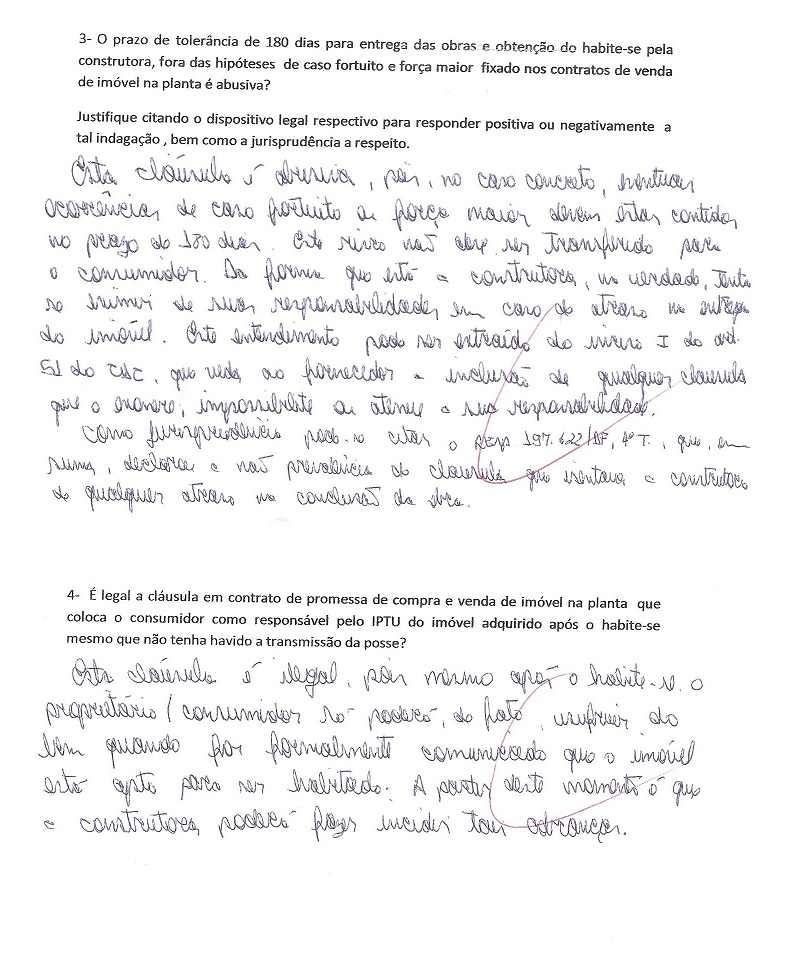 3- O prazo de tolerância de 180 dias para entrega das obras e obtenção do habite-se pela
construtora, fora das hipóteses de caso fortuito e força maior fixado nos contratos de venda
de imóvel na planta é abusiva?
Justifique citando o dispositivo legal respectivo para responder positiva ou negativamente a
tal indagação , bem como a jurisprudência a respeito.
Esta cláusula é abusiva, pois, no caso concreto, eventuais
ocorrências de caso fortuito ou força maior devem estar contidas
no prazo de 180 dias. Este risco não deve ser transferido para
o consumidor. Da forma que está a construtora, na verdade, tenta
se eximir de suas responsabilidades em caso de atraso na entrega
do imóvel. Este entendimento pode ser extraído do inciso I do art.
51 do CDC, que veda ao fornecedor a inclusão de qualquer cláusula
que o exonere, impossibilite ou atenue a sua responsabilidade.
Como jurisprudência pode-se citar o REsp 197.622/DF, 4ª T., que, em
suma, declarou a não prevalência da cláusula que isentava a construtora
de qualquer atraso na conclusão da obra.
4- É legal a cláusula em contrato de promessa de compra e venda de imóvel na planta que
coloca o consumidor como responsável pelo IPTU do imóvel adquirido após o habite-se
mesmo que não tenha havido a transmissão da posse?
Esta cláusula é ilegal, pois mesmo após o habite-se, o
proprietário/consumidor só poderá, de fato, usufruir do
bem quando for formalmente comunicado que o imóvel
está apto para ser habitado. A partir deste momento é que
a construtora poderá fazer incidir tais cobranças.